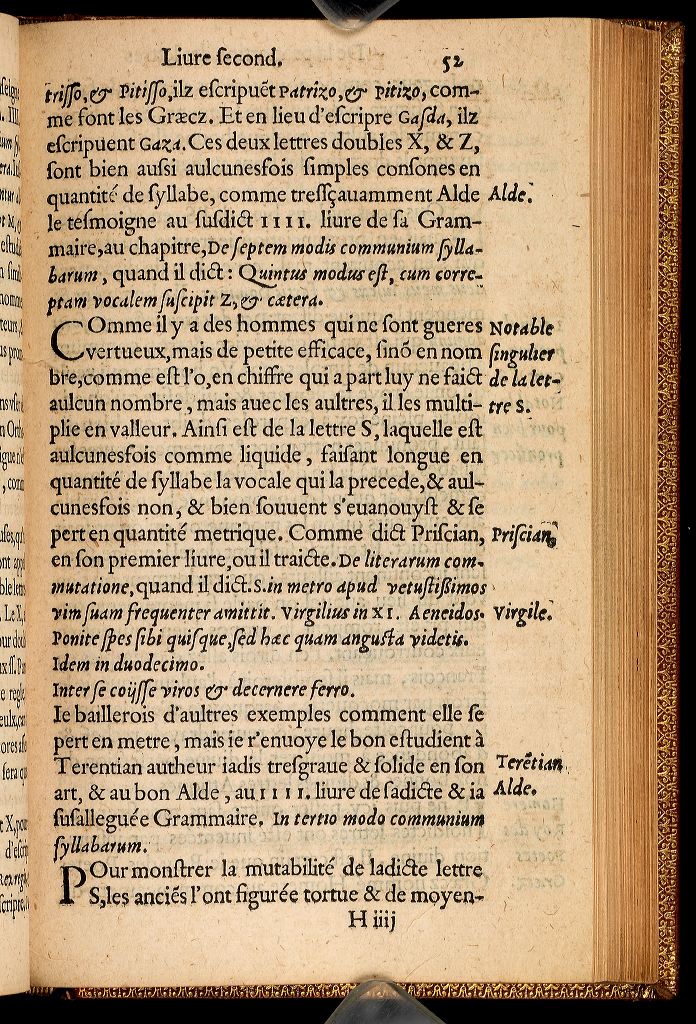 Liure ſecond. 52
triſſo, & Pitiſſo, ilz eſcripuẽt Patrizo, & pitizo, com-
me font les Græcz. Et en lieu d'eſcripre Gaſda, ilz
eſcripuent Gaza. Ces deux lettres doubles X, & Z,
ſont bien auſsi aulcunesfois ſimples conſones en
quantité de ſyllabe, comme treſſçauamment Alde
Alde.
le teſmoigne au ſuſdict IIII. liure de ſa Gram-
maire, au chapitre, De ſeptem modis communium ſylla-
barum, quand il dict: Quintus modus eſt, cum corre-
ptam vocalem ſuſcipit Z, & cætera.
COmme il y a des hommes qui ne ſont gueres
vertueux, mais de petite efficace, ſinõ en nom
bre, comme eſt l'o, en chiffre qui a part luy ne faict
aulcun nombre, mais auec les aultres, il les multi-
Notable
ſingulier
de la let-
tre S.
plie en valleur. Ainſi eſt de la lettre S, laquelle eſt
aulcunesfois comme liquide, faiſant longue en
quantité de ſyllabe la vocale qui la precede, & aul-
cunesfois non, & bien ſouuent s'euanouyſt & ſe
pert en quantité metrique. Comme dict Priſcian,
Priſcian.
en ſon premier liure, ou il traicte. De literarum com-
mutatione, quand il dict. S. in metro apud vetuſtiſsimos
vim ſuam frequenter amittit. Virgilius in XI. Aeneidos.
Virgile.
Ponite ſpes ſibi quiſque, ſed hæc quam anguſta videtis.
Idem in duodecimo.
Inter ſe coijſſe viros & decernere ferro.
Ie baillerois d'aultres exemples comment elle ſe
pert en metre, mais ie r'enuoye le bon eſtudient à
Terentian autheur iadis treſgraue & ſolide en ſon
Terẽtian
art, & au bon Alde, au IIII. liure de ſadicte & ia
Alde.
ſuſalleguée Grammaire. In tertio modo communium
ſyllabarum.
POur monſtrer la mutabilité de ladicte lettre
S, les anciẽs l'ont figurée tortue & de moyen-
H iiij